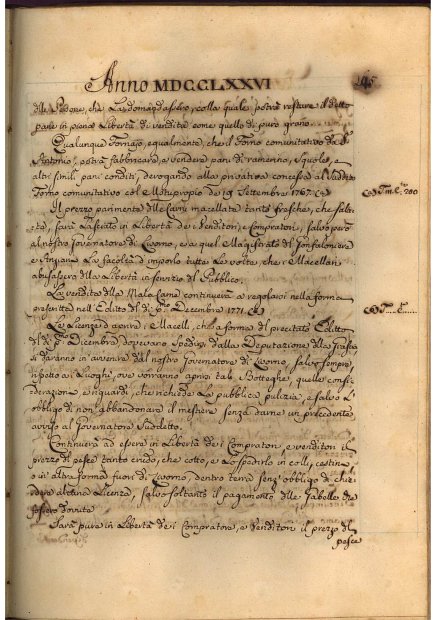 Anno MDCCLXXVI
145
colla quale potrà restare il detto
pane in piena Libertà di vendita come quello di puro grano.
Qualunque Fornajo, egualmente, che il Forno comunitativo da S.
Antonio, potrà fabbricare, e vendere pani di ramerino, e
altri simili pani conditi, derogando alla privativa concessa al suddetto
Forno comunitativo col Motuproprio de' 19 Settembre 1767. (a)
(a) T. 200
Il prezzo parimente delle Carni macellate tanto fresche, che salate
sarà Lasciato in Libertà de i Venditori, e Compratori, salvo però
al nostro Governatore di Livorno, e a quel Magistrato del Gonfaloniere
e Anziani La facoltà d' imporlo tutte Le volte, che i Macellari
abusassero della Libertà in servizio del Pubblico.
La vendita della Mala Carne continuerà a regolarsi nella forma
prescritta nell' Editto del dì p.º Decembre 1771. (b)
(b) T.
Le Licenze d' aprire i Macelli, che a forma del precitato Editto
del dì p.º Dicembre dovevano spedirsi dalla Deputazione della Grascia
si daranno in avvenire dal nostro Governatore di Livorno, salvo sempre
rispetto a i Luoghi, ove vorranno aprirsi tali Botteghe, quelle consi-
derazioni e riguardi, che richiede La pubblica pulizia, e salvo L'
obbligo di non abbandonare il mestiere senza darne un precedente
avviso al Governatore suddetto.
Continuerà ad essere in Libertà de i Compratori, e venditori il
prezzo di pesce tanto crudo, che cotto, e Lo spedirlo in colli, cestini
o in altra forma fuori di Livorno, dentro terra senz' obbligo di chie-
dere alcuna Licenza, salvo soltanto il pagamento delle Gabelle che
fossero dovute
Sarà pure in Libertà de i Compratori, e Venditori il prezzo del
pesce